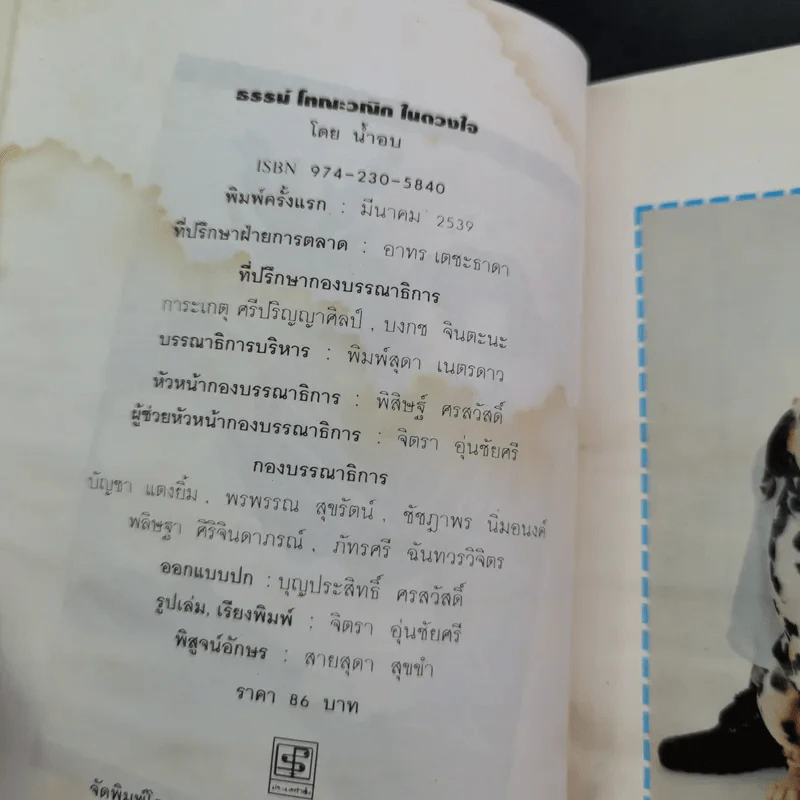 ธรรม์ โทณะวณิก ในดวงใจ
โดย น้ำอบ
ISBN 974-230-5840
พิมพ์ครั้งแรก : มีนาคม 2539
ที่ปรึกษาฝ่ายการตลาด : อาทร เตชะธาดา
ที่ปรึกษากองบรรณาธิการ
การะเกตุ ศรีปริญญาศิลป์ , บงกช จินตะนะ
บรรณาธิการบริหาร : พิมพ์สุดา เนตรดาว
หัวหน้ากองบรรณาธิการ : พิสิษฐ์ ศรสวัสดิ์
ผู้ช่วยหัวหน้ากองบรรณาธิการ : จิตรา อุ่นชัยศรี
กองบรรณาธิการ
บัญชา แดงยิ้ม , พรพรรณ สุขรัตน์ , ชัชฎาพร นิ่มอนงค์
พลิษฐา ศิริจินดาภรณ์ , ภัทรศรี ฉันทวรวิจิตร
ออกแบบปก : บุญประสิทธิ์ ศรสวัสดิ์
รูปเล่ม, เรียงพิมพ์ : จิตรา อุ่นชัยศรี
พิสูจน์อักษร : สายสุดา สุขขำ
ราคา 86 บาท